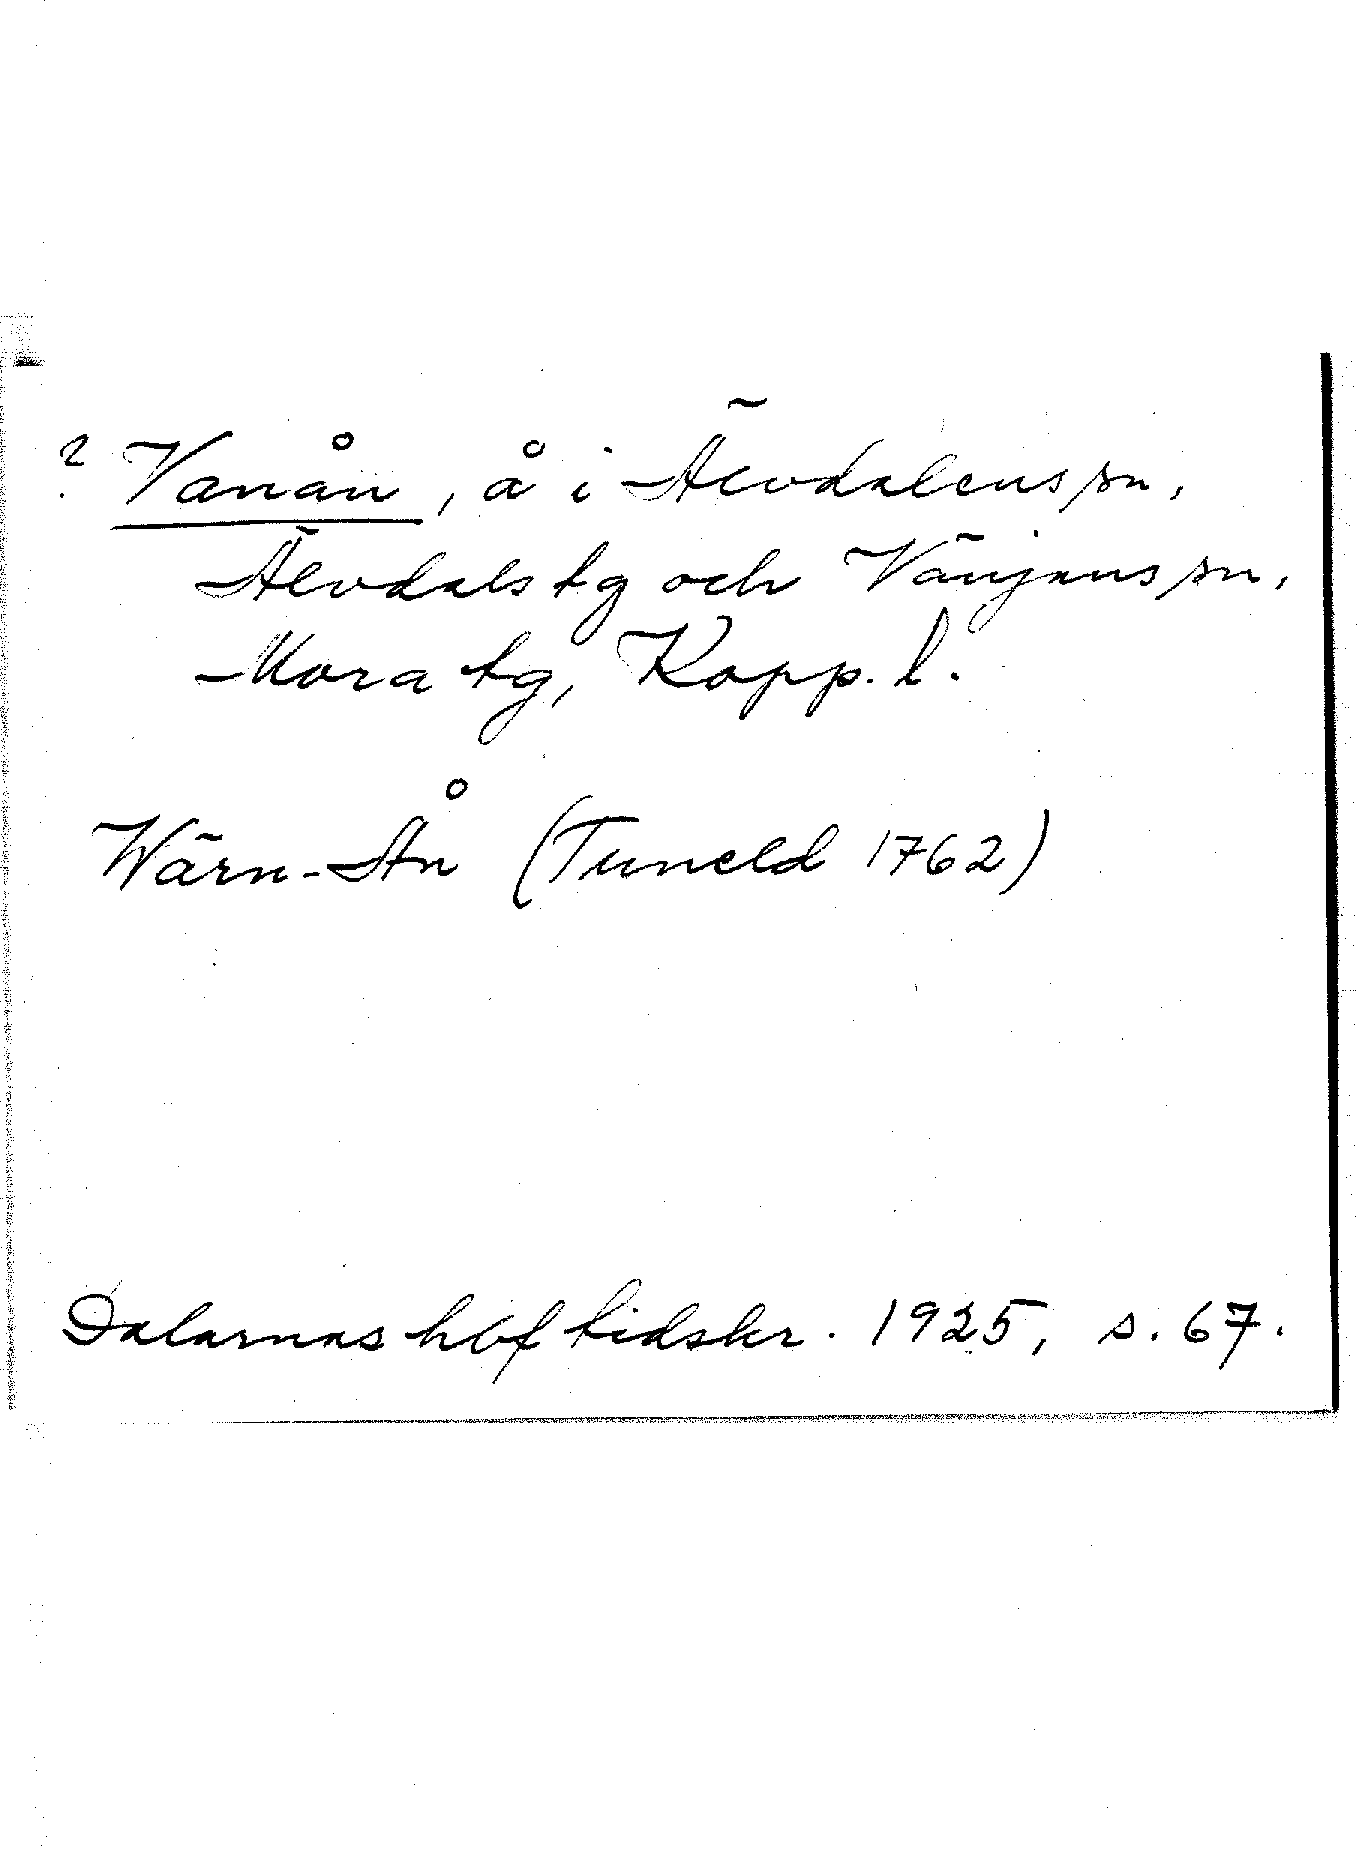 ? Vanån, å i Älvdalens sn,
Älvdals tg och Vänjans sn,
Mora tg, Kopp. l.
Wärn-Ån (Tuneld 1762)
Dalarnas hbf tidskr. 1925, s. 67.